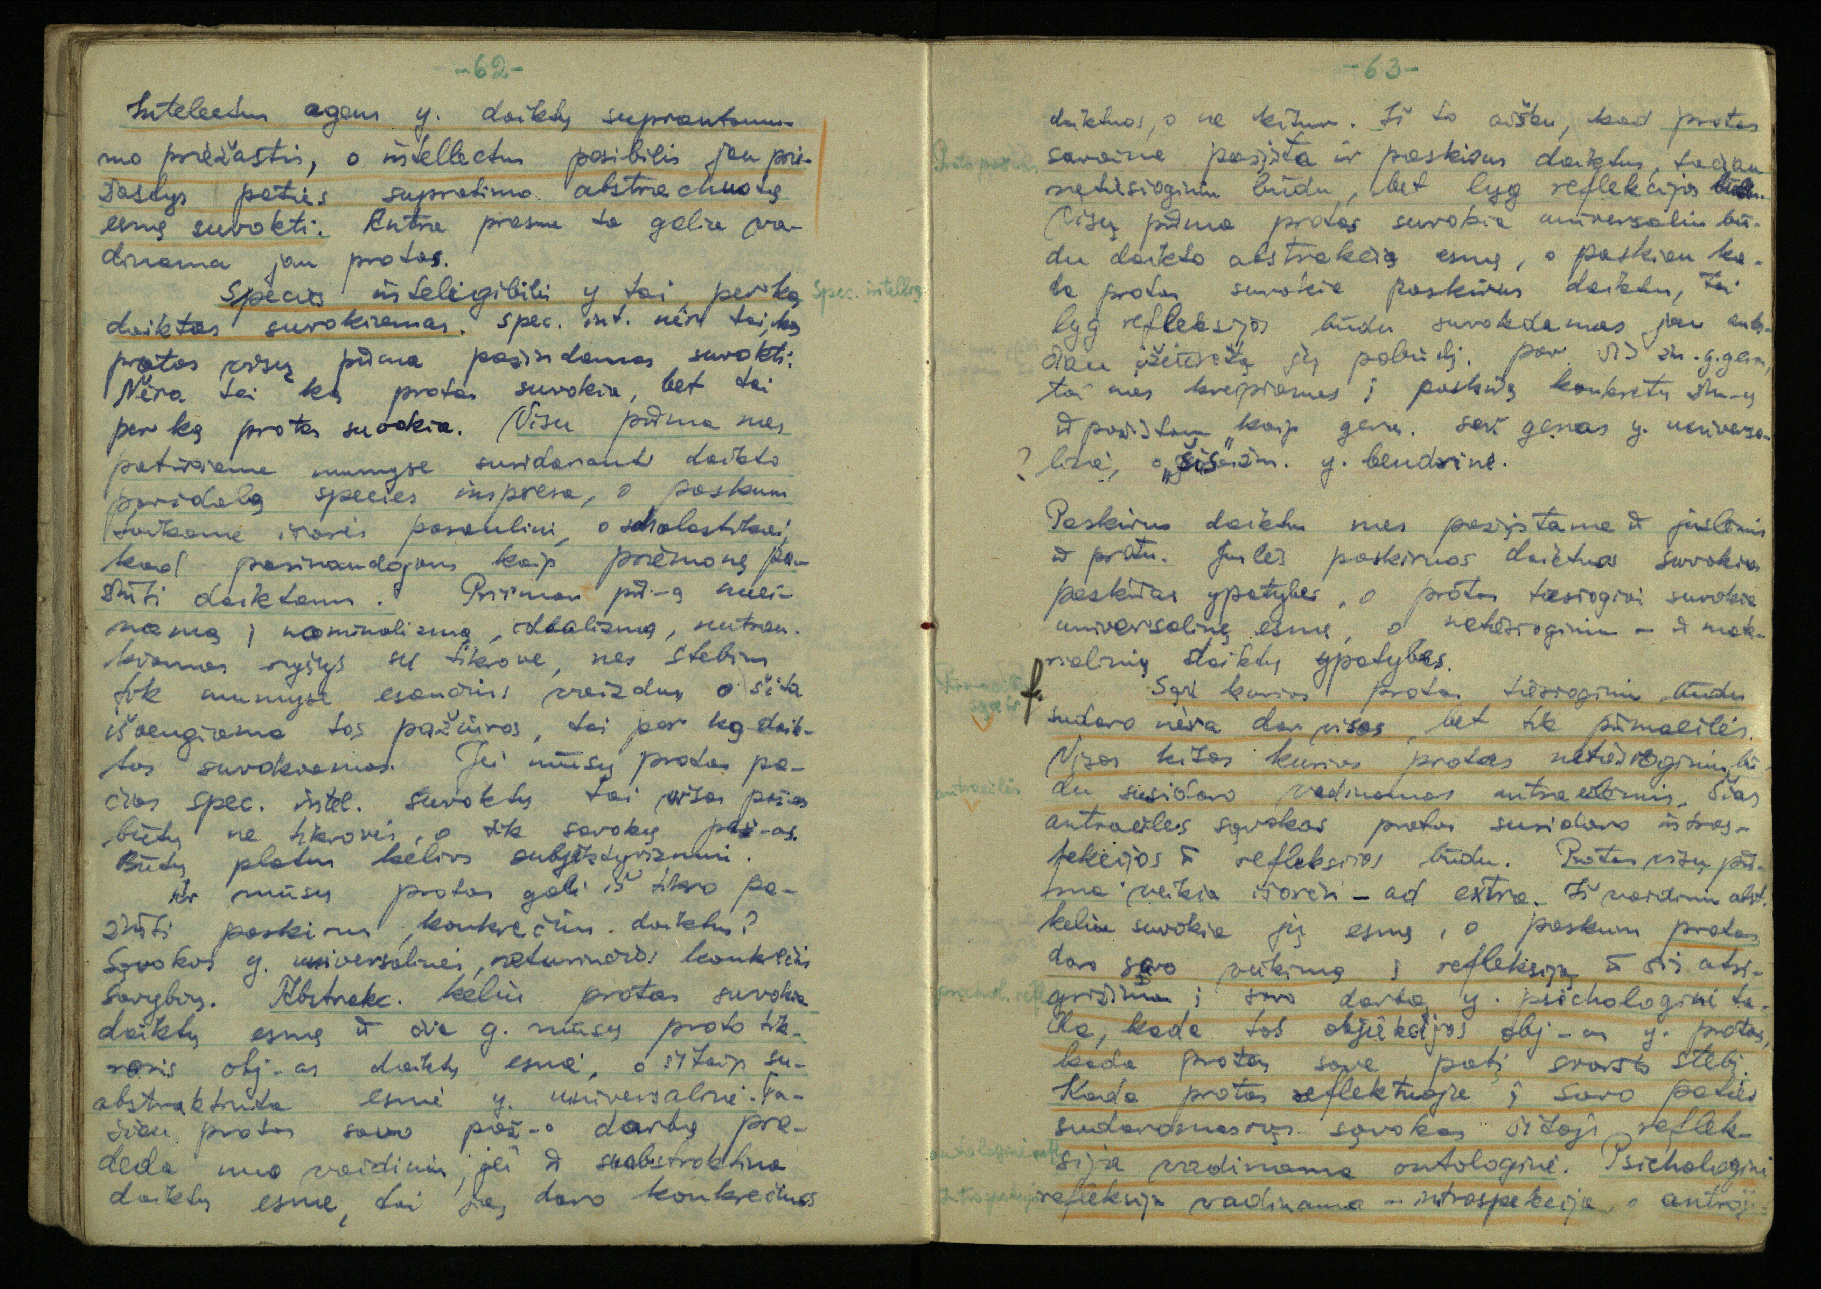 -62-
Intelectus agens y. daiktų suprantamu-
mo priežastis, o intellectus posibilis jau prie-
žastys paties supratimo abstrachuotą
esmę suvokti. Antra prasme ta galia va-
dinama jau protas.
Species inteligibilis y tai, per ką
daiktas suvokiamas. Spec. int. nėra tai, ką
protas visų pirma pažindamas suvokti.
Nėra tai ką protas suvokia, bet tai
per ką protas suvokia. Visų pirma mes
patiriame mumyse susidarant daikto
pavidalą species inspresa, o paskum
taikome išorės pasauliui, o scholastikai,
kad pasinaudojam kaip priemonę pa-
žinti daiktams. Priiman
namą į nominalizmą, idealizmą, nutrau-
kiamas ryšys su tikrove, nes stebim
tik mumyse esančius vaizdus o šita
išvengiama tos pažiūros, tai per ką daik-
tas suvokiamas. Jei mūsų protas pa-
čias spec. intel. suvoktų tai visas paž-as
būtų ne tikrovės, o tik sąvokų paž-as.
Būtų platus kelias subjektyvizmui.
Ar mūsų protas gali iš tikro pa-
žinti paskirus, konkrečius daiktus?
Sąvokos y. universalinės, neturinčios konkrečių
savybių. Abstrakc. keliu protas suvokia
daiktų esmę ir čia g. mūsų proto tik-
rasis obj-as daiktų esmė, o šitaip su-
abstraktinta esmė y. universalinė. Ta-
čiau protas savo paž-o darbą pra-
deda nuo vaidinių, jei ir suabstraktina
daiktų esmę, tai jas daro konkrečius
Spec. intellig
-63-
daiktuos, o ne kitur. Iš to aišku, kad protas
savaime pažįsta ir paskirus daiktus, tačiau
netiesioginiu būdu, bet lyg refleksijos būdu.
Visų pirma protas suvokia universaliu bū-
du daikto abstrakčią esmę, o paskiau ka-
da protas suvokia paskirus daiktus, tai
lyg refleksijos būdu suvokdamas jau
jų pobūdį. Pav. šis žm. g. geras,
tai mes kreipiamės į paskirą konkretų žm-ų
ir pažįstam kaip gerą. Sav. geras y. universa-
linė, o „šis" žm. y. bendrinė.
?
Paskirus daiktus mes pažįstame ir juslėmis
ir protu. Juslės paskiruos daiktuos suvokia
paskiras ypatybes, o protas tiesioginiai suvokia
universalinę esmę, o netiesioginiu - ir mate-
rialinių daiktų ypatybes.
Sąv. kurias protas tiesioginiu būdu
sudaro nėra dar visos, bet tik pirmaeilės.
Visas kitas kurias protas netiesioginiu bū-
du susidaro vadinamos antraeilėmis. Šias
antraeiles sąvokas protas susidaro intros-
pekcijos ir refleksijos būdu. Protas visų pir-
ma veikia išorėn - ad extra. Iš vaidinių abst.
keliu suvokia jų esmę, o paskum protas
daro savo veikimą į refleksiją ir šis atsi-
grįžimas į savo darbą y. psichologinė ta-
čka, kada tos objekcijos obj-as y. protas,
kada protas save patį svarsto stebi.
Kada protas reflektuoja į savo paties
sudaromąsias sąvokas šitoji reflek-
sija vadinama ontologinė. Psichologinė
refleksija vadinama - introspekcija, o antroji-
antraeilės